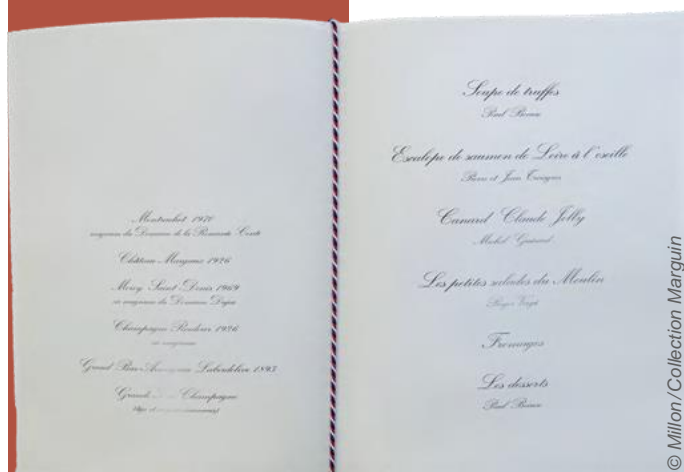 Montrachet 1970
magnum du Domaine de la Romanée Conti
Château Margaux 1926
Morey Saint Denis 1969
en magnum du Domaine Dujac
Champagne Roederer 1926
en magnum
Grand Bas Armagnac Laberdolive 1893
Grande Champagne
Soupe de truffes
Paul Bocuse
Escalope de saumon de Loire à l'oseille
Pierre et Jean Troisgros
Canard Claude Jolly
Michel Guérard
Les petites salades du Moulin
Roger Vergé
Fromages
Les desserts
Paul Bocuse
© Millon/Collection Marguin